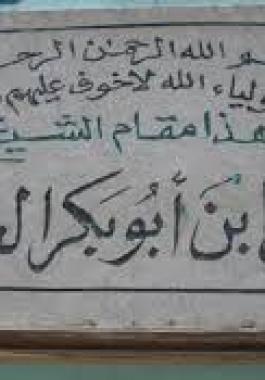 الله الرحمن الرحـ
الله لاخوف عليهم
هذا مقام الشيخ
بن أبوبكر